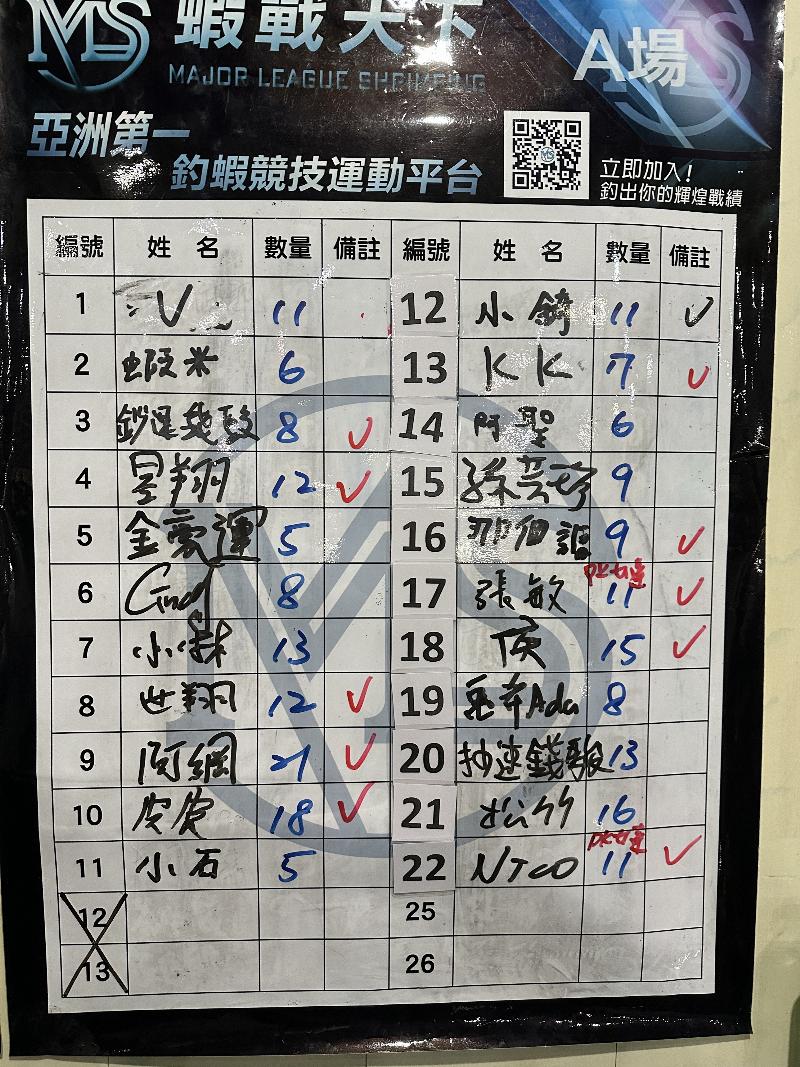 MS 蝦戰天下
MAJOR LEAGUE SHRIMPING
A場
亞洲第一
釣蝦競技運動平台
立即加入!
釣出你的輝煌戰績
編號 姓名 數量 備註 編號 姓名 數量 備註
1 V 11 12 小錡 11 ✓
2 蝦米 6 13 KK 7 ✓
3 8 ✓ 14 阿聖 6
4 昱翔 12 ✓ 15 孫 9
5 金豪運 5 16 那個誰 9 ✓
6 8 17 張敏 11 ✓
7 小 13 18 侯 15 ✓
8 世翔 12 ✓ 19 Ada 8
9 阿網 21 ✓ 20 13
10 皮皮 18 ✓ 21 松竹 16
11 小石 5 22 NTCO 11 ✓
12 25
13 26